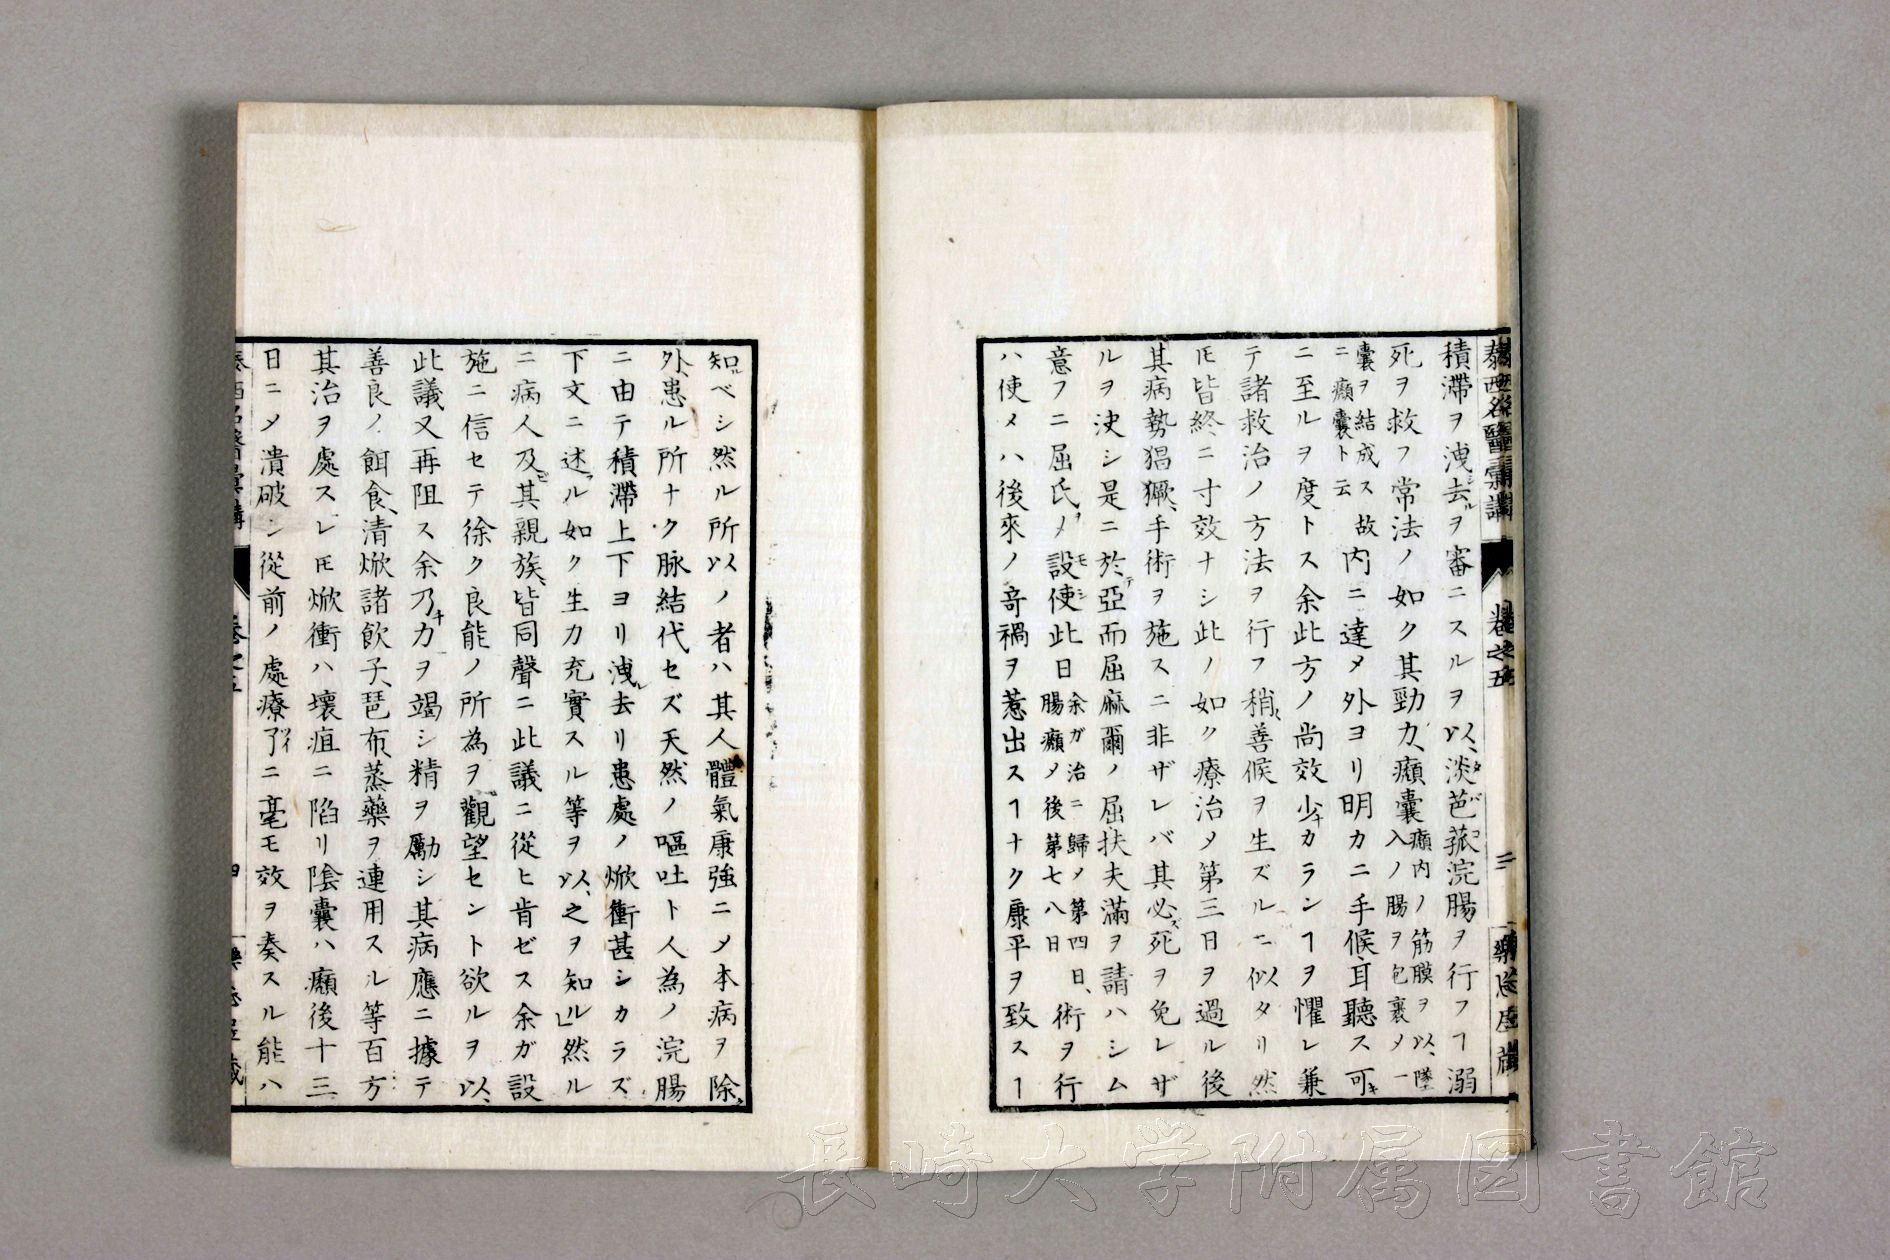 泰西名醫彙講
卷之五
三
積滯ヲ洩去ルヲ審ニスルヲ以、淡芭菰浣腸ヲ行フヿ溺
死ヲ救フ常法ノ如ク其勁力、癩囊癩内ノ筋膜ヲ以、墜入ノ腸ヲ包裹メ一
囊ヲ結成ス故ニ癩囊ト云内ニ達メ外ヨリ明カニ手候、耳聽ス可キ
ニ至ルヲ度トス余此方ノ尚效少ナカランヿヲ懼レ兼
テ諸救治ノ方法ヲ行フ稍善候ヲ生ズルニ似タリ然
𪜈皆終ニ寸效ナシ此ノ如ク療治メ第三日ヲ過ル後
其病勢猖獗、手術ヲ施スニ非ザレバ其必ズ死ヲ免レザ
ルヲ決シ是ニ於テ亞而屈麻爾ノ屈扶夫滿ヲ請ハシム
意フニ屈氏ヲメ設シ使此日余ガ治ニ歸ノ第四日、腸癩メ後第七八日術ヲ行
ハ使メハ後來ノ竒禍ヲ惹出スヿナク康平ヲ致スヿ
知ルベシ然ル所以ノ者ハ其人體氣康強ニメ本病ヲ除ク
外、患ル所ナク脉結代セズ天然ノ嘔吐ト人為ノ浣腸
ニ由テ積滯上下ヨリ洩レ去リ患處ノ焮衝甚シカラズ
下文ニ述ブル如ク生力充實スル等ヲ以、之ヲ知ル然ル
ニ病人及ビ其親族、皆同聲ニ此議ニ從ヒ肯ゼス余ガ設
施ニ信セテ徐ク良能ノ所為ヲ觀望セント欲ルヲ以、
此議又再阻ス余乃チ力ヲ竭シ精ヲ勵シ其病應ニ據テ
善良ノ餌食、清焮諸飲子、琶布、蒸藥ヲ連用スル等百方
其治ヲ處スレ𪜈焮衝ハ壞疽ニ陷リ陰囊ハ癩後十三
日ニメ潰破シ從前ノ處療了ニ毫モ效ヲ奏スル能ハ
泰西名醫彙講
卷之五
四
長崎大学附属図書館